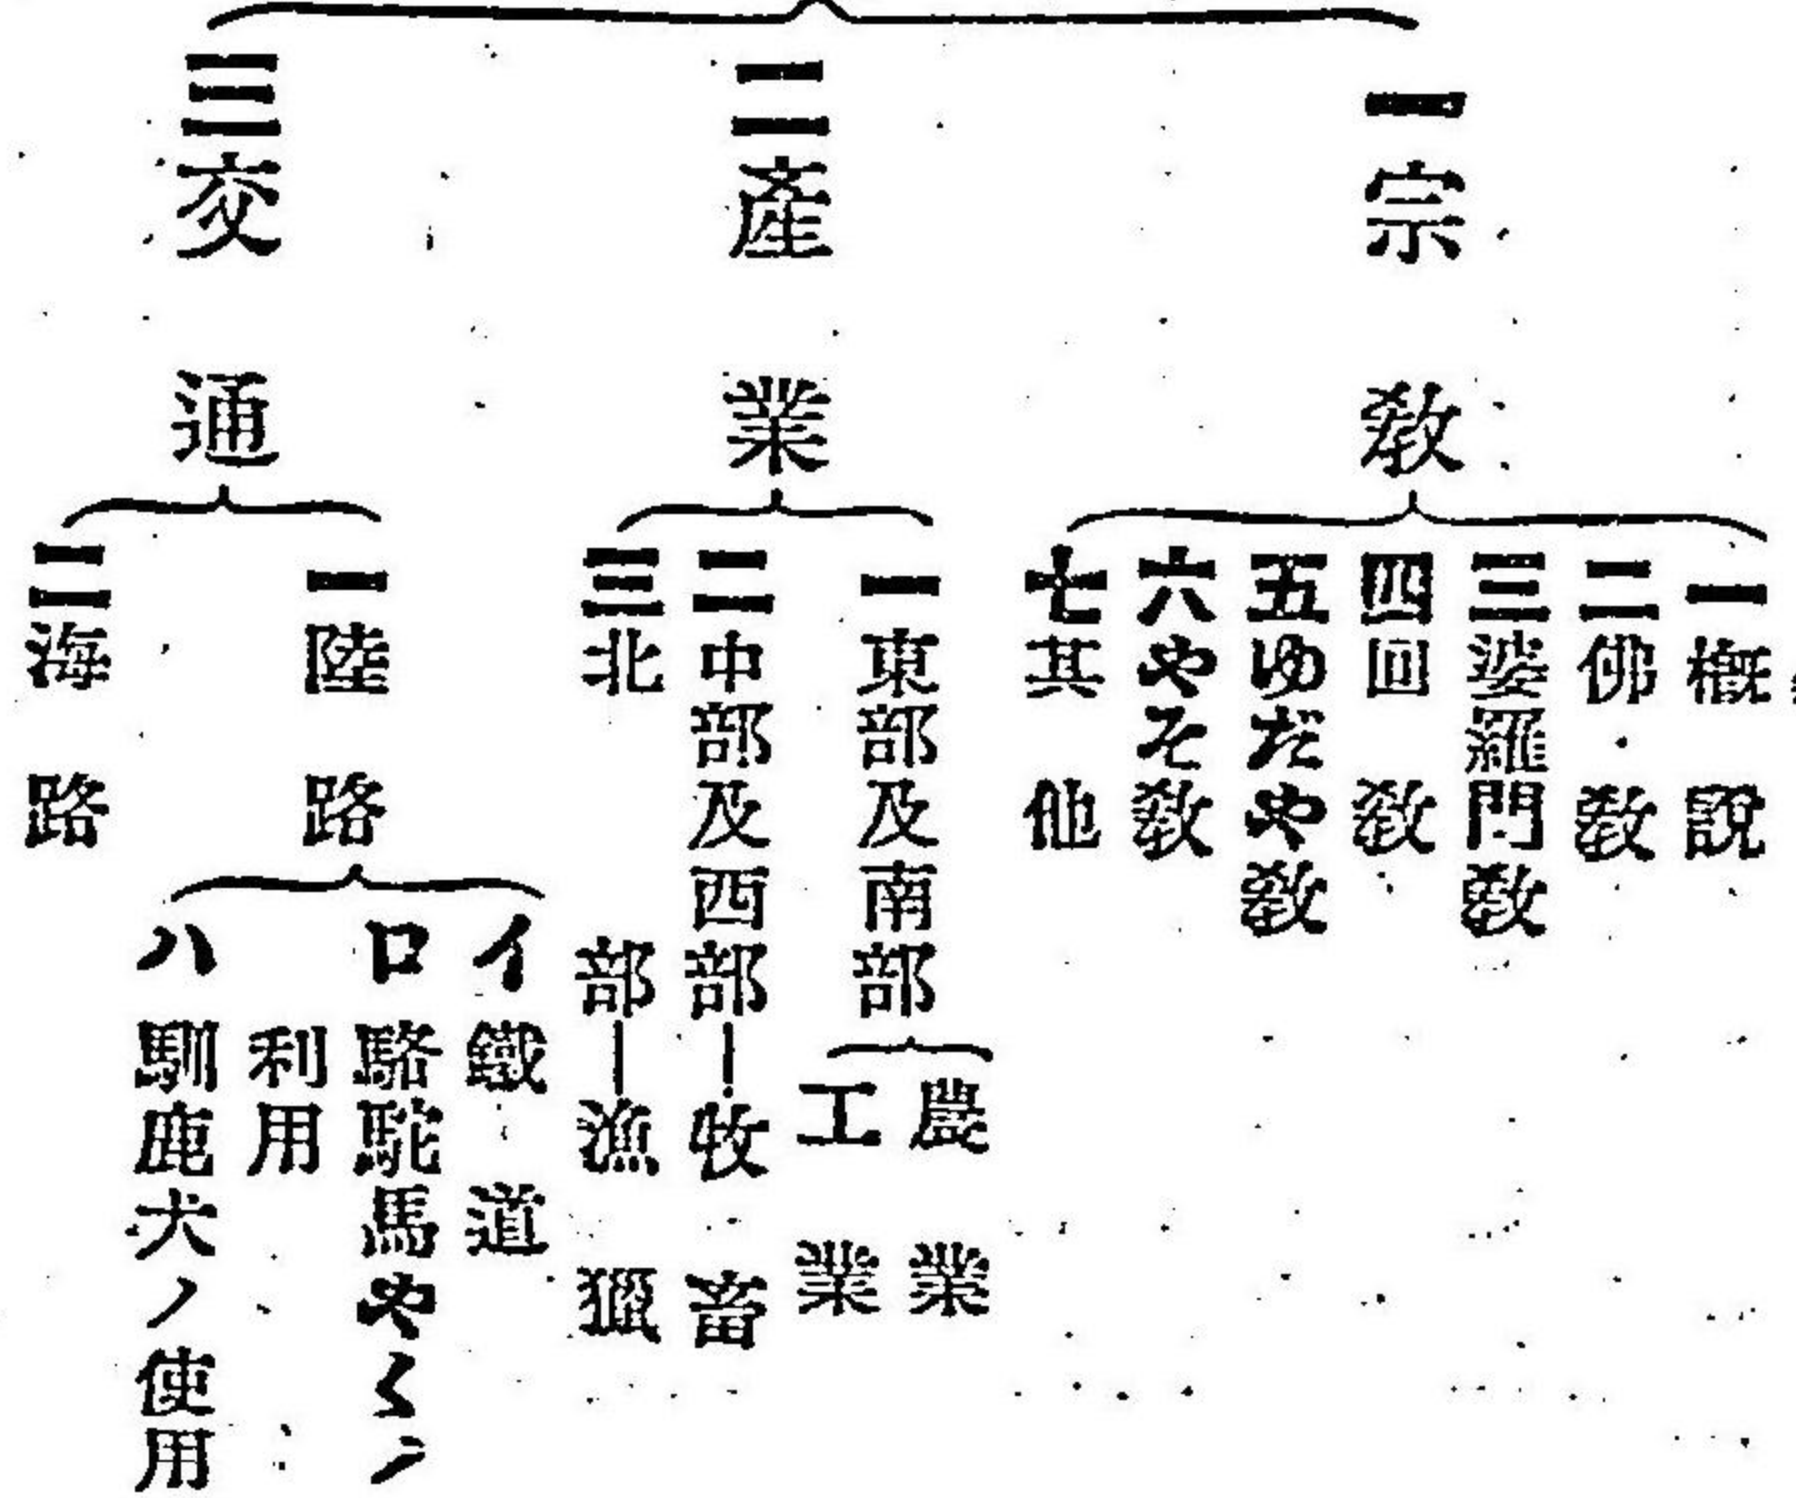 一宗教
一概説
二佛教
三婆羅門教
四回教
五ゆだや教
六やそ教
七其他
二產業
一東部及南部
農業
工業
二中部及西部―牧畜
三北部―漁獵
三交通
一陸路
イ鐵道
ロ駱駝馬やくノ
利用
ハ馴鹿犬ノ使用
二海路